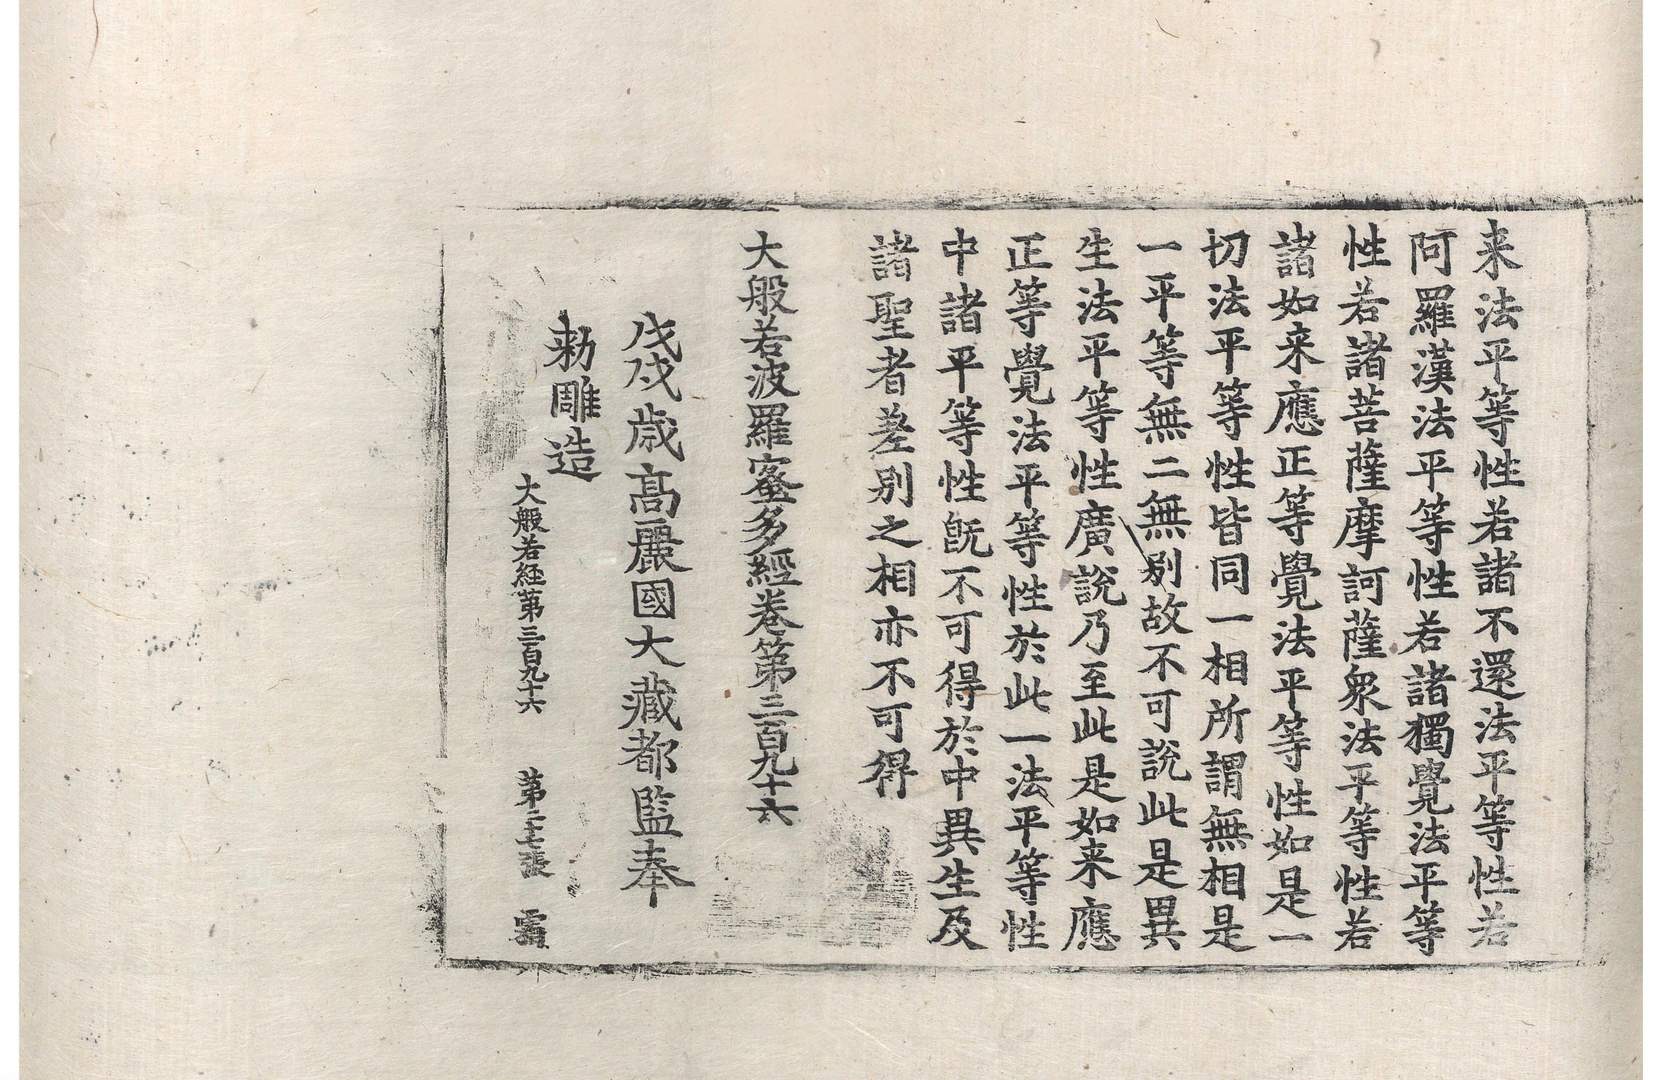 来法平等性若諸不還法平等性若
阿羅漢法平等性若諸獨覺法平等
性若諸菩薩摩訶薩衆法平等性若
諸如来應正等覺法平等性如是一
切法平等性皆同一相所謂無相是
一平等無二無別故不可說此是異
生法平等性廣說乃至此是如来應
正等覺法平等性於此一法平等性
中諸平等性旣不可得於中異生及
諸聖者差別之相亦不可得
大般若波羅蜜多經卷第三百九十六
戊戌歲高麗國大藏都監奉
勑雕造
大般若経第三百九十六 第二十七張 霜